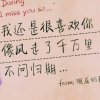 Danny
I miss you so...”
我还是很喜欢你
像风走了千万里
不问归期...
from